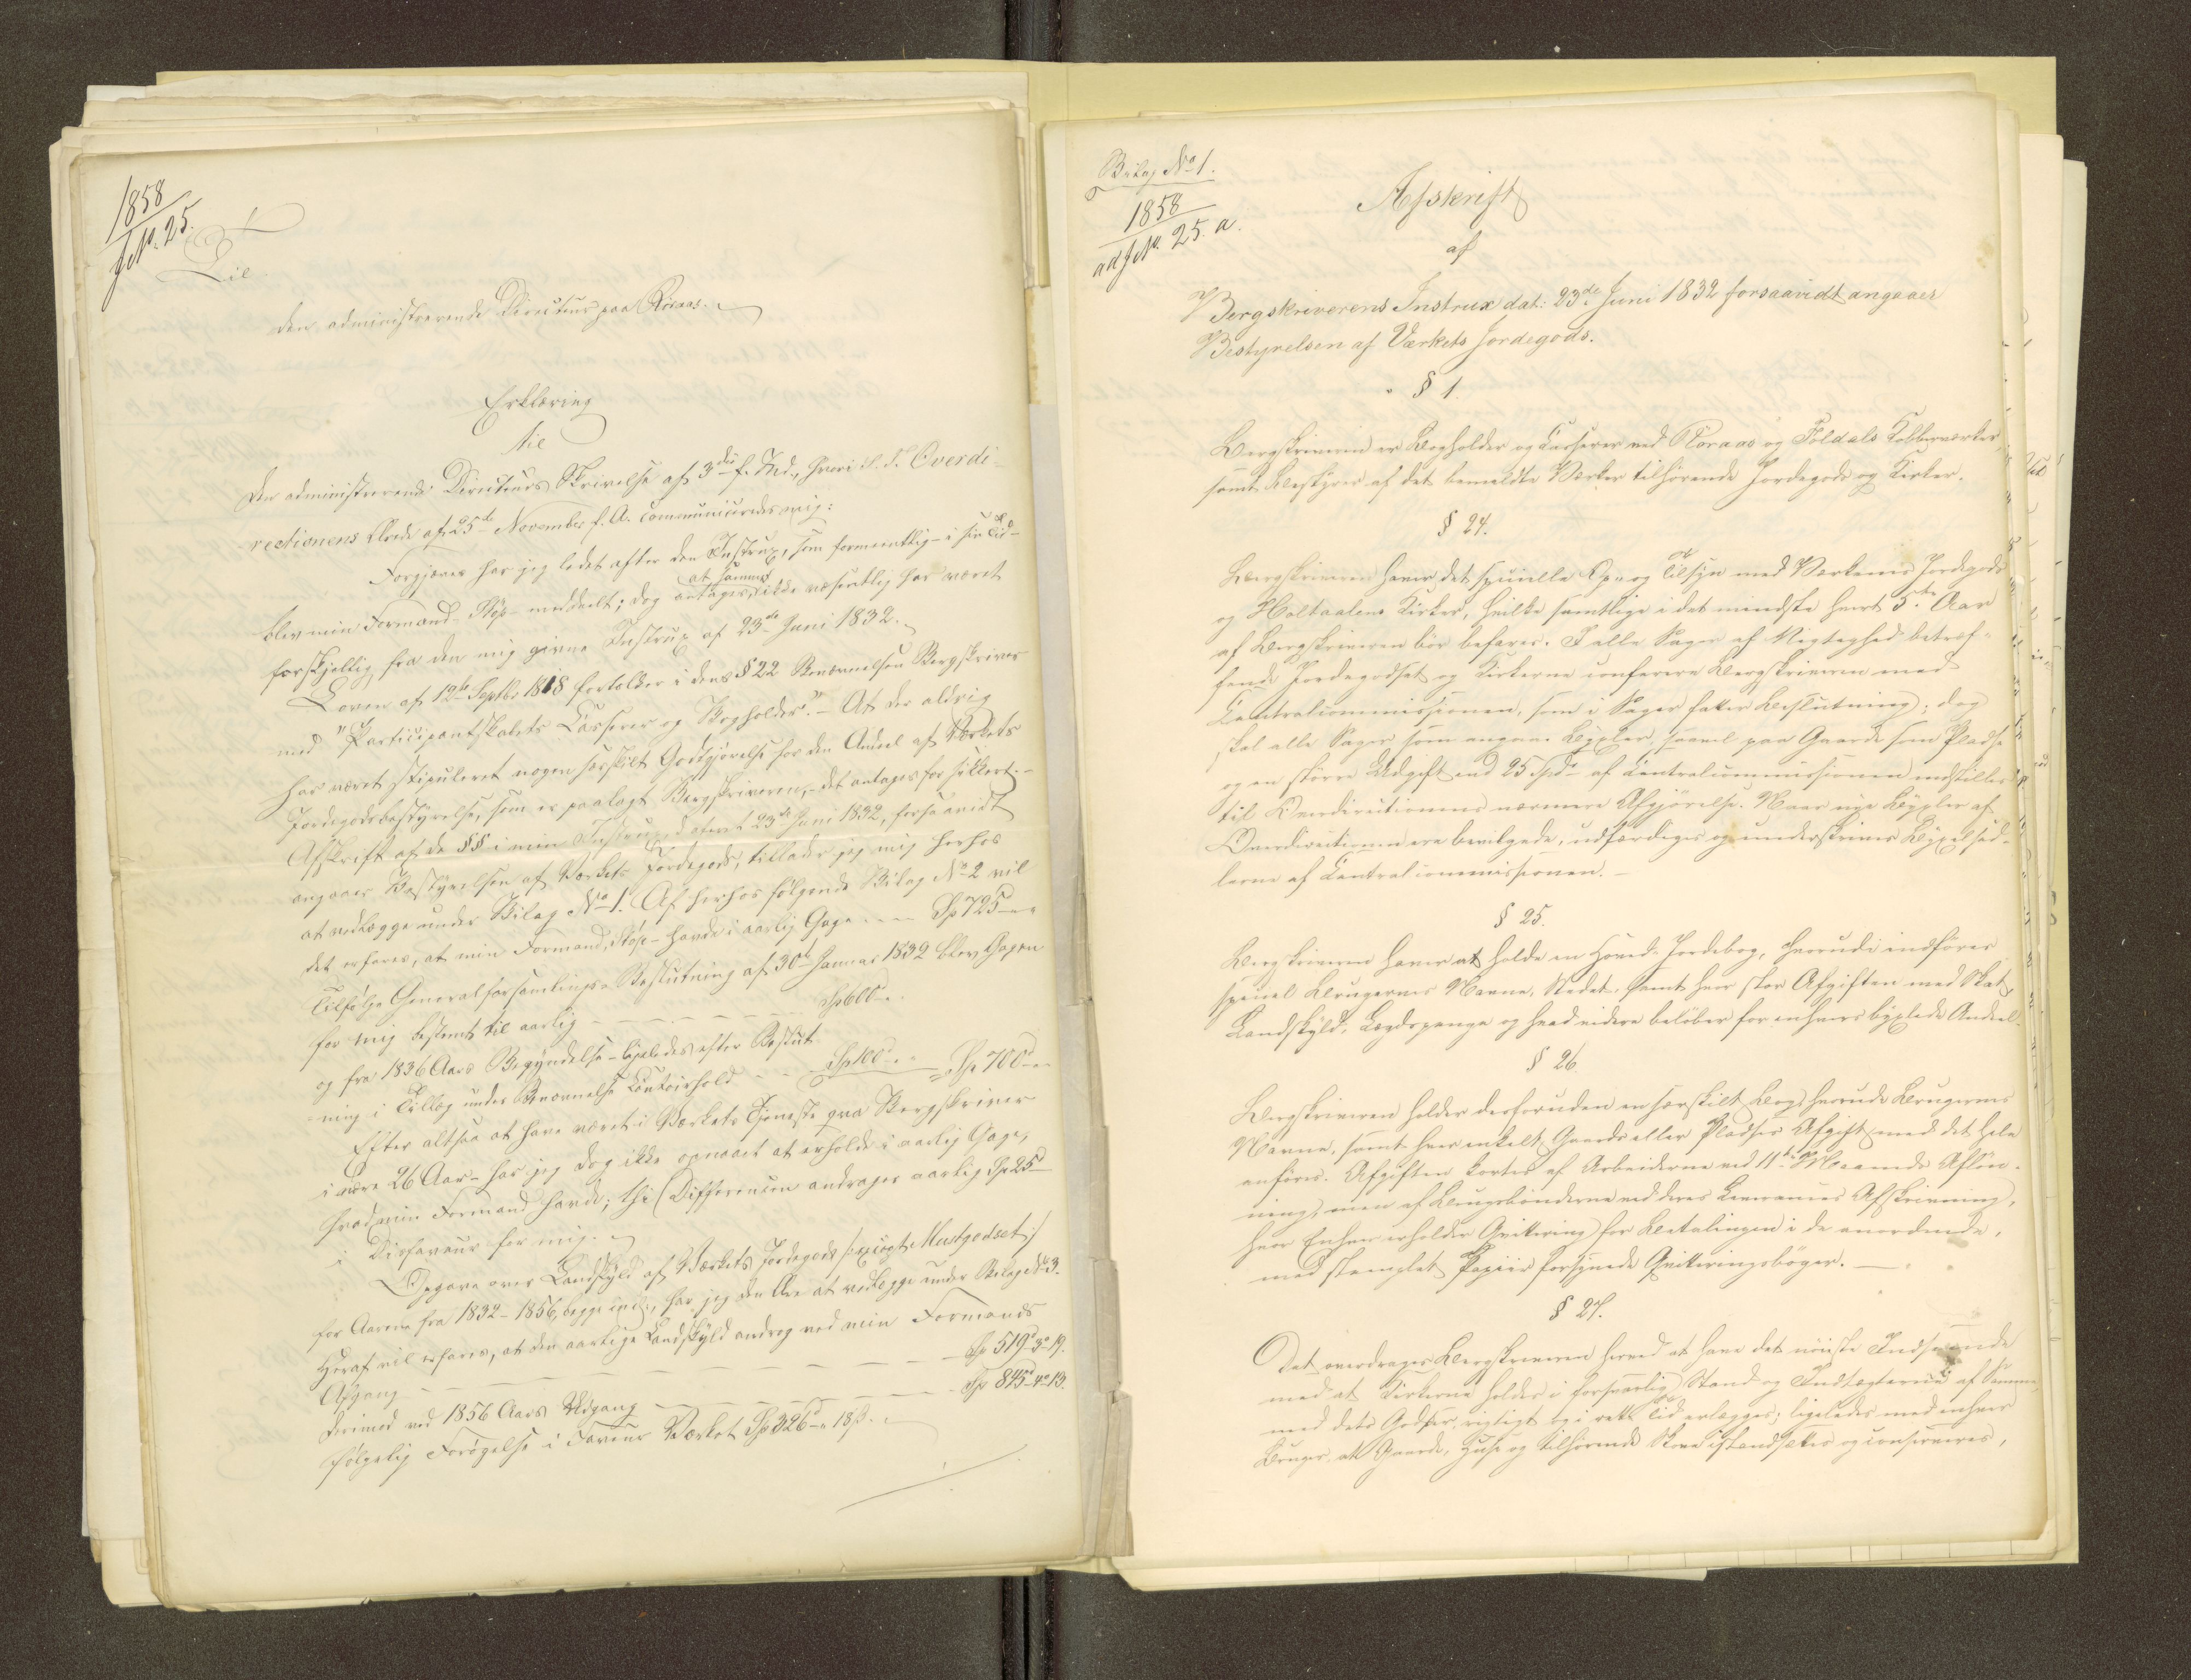 1858
J.No. 25.
Til
den administrerende Directeur paa Röraas.
Erklæring
til
den administrerende Directeurs Skrivelse af 3die f. Md., hvori d. H. Overdi-
rectionens Brev af 25de November f. A. communiceredes mig:
Forgjæves har jeg ledet efter den Instrux, som formeentlig i sin Tid
blev min Formand Støp meddeelt; dog antages, at samme ikke væsentlig har været
forskjellig fra den mig givne Instrux af 23de Juni 1832.
Loven af 12te Septbr 1818 fortolker i dens § 22 Benævnelsen Bergskriver
med "Participantskabets Casserer og Bogholder". – At der aldrig
har været stipuleret nogen særskilt Godtgjørelse for den Andeel af Værkets
Jordegodsbestyrelse, som er paalagt Bergskriveren, det antages for sikkert. –
Afskrift af de §§ i min Instrux dateret 23de Juni 1832, forsaavidt
angaaer Bestyrelsen af Værkets Jordegods, tillader jeg mig herhos
at vedlægge under Bilag No 1. Af herhos følgende Bilag No 2 vil
det erfares, at min Formand, Støp havde i aarlig Gage Sp 725
Tilfølge Generalforsamlings-Beslutning af 30te Januar 1832 blev Gagen
for mig bestemt til aarlig Sp 600
og fra 1836 Aars Begyndelse ligeledes efter Beslut-
ning i Tillæg under Benævnelse Contoirhold Sp 100 = Sp 700
Efter altsaa at have været i Værkets Tjeneste qva Bergskriver
i over 26 Aar har jeg dog ikke opnaaet at erholde i aarlig Gage,
hvad min Formand havde; thi Differencen andrager aarlig Sp 25
i Disfaveur for mig.
Opgave over Landskyld af Værkets Jordegods /: excepte Mustgodset :/
for Aarene fra 1832 – 1856, begge incl., har jeg den Ære at vedlægge under Bilag No 3.
Heraf vil erfares, at den aarlige Landskyld androg ved min Formands
Afgang Sp 519 – 3 – 19.
derimod ved 1856 Aars Udgang Sp 845 – 4 – 13.
følgelig Forøgelse i Faveur Værket Sp 326 – 18 ß.
Bilag No 1.
1858
ad J.No. 25. a.
Afskrift
af
Bergskriverens Instrux dat: 23de Juni 1832 forsaavidt angaaer
Bestyrelsen af Værkets Jordegods.
§ 1.
Bergskriveren er Bogholder og Casserer ved Röraas og Foldals Kobberværker,
samt Bestyrer af det bemeldte Værker tilhørende Jordegods og Kirker.
§ 24.
Bergskriveren haver det specielle Op- og Tilsyn med Værkernes Jordegods
og Holtaalens Kirker, hvilke samtlige i det mindste hvert 5te Aar
af Bergskriveren bør befares. I alle Sager af Vigtighed betræf-
fende Jordegodset og Kirkerne conferere Bergskriveren med
Centralcommissionen, som i Sagen fatter Beslutning; dog
skal alle Sager som angaae Bygsler, saavel paa Gaarde som Pladse
og en større Udgift end 25 Spd af Centralcommissionen indstilles
til Overdirectionens nærmere Afgjørelse. Naar nye Bygsler af
Overdirectionen ere bevilgede, udfærdiges og underskrives Bygselsed-
lerne af Centralcommissionen. –
§ 25.
Bergskriveren haver at holde en Hoved-Jordebog, hvorudi indføres
speciel Brugernes Navne, Stedet, samt hvor stor Afgiften med Skat,
Landskyld, Lægdspenge og hvad videre beløber for enhvers bygslede Andeel.
§ 26
Bergskriveren holder desforuden en særskilt Bog, hvorudi Brugernes
Navne, samt hver enkelt Gaards eller Pladses Afgift med det hele
anføres. Afgiften kortes af Arbeiderne ved 11te Maaneds Afløn-
ning, men af Brugsbønderne ved deres Leverancers Afskrivning,
hvor Enhver erholder Qvittering for Betalingen i de anordnede,
med stemplet Papiir forsynede Qvitteringsbøger. –
§ 27.
Det overdrages Bergskriveren herved at have det nöieste Indseende
med at Kirkerne holdes i forsvarlig Stand og Indtægterne af Samme
med dets Godser, rigtigt og i rette Tid erlægges; ligeledes med enhver
Bruger, at Gaarde, Huse og tilhørende Skove istandsættes og conserveres,